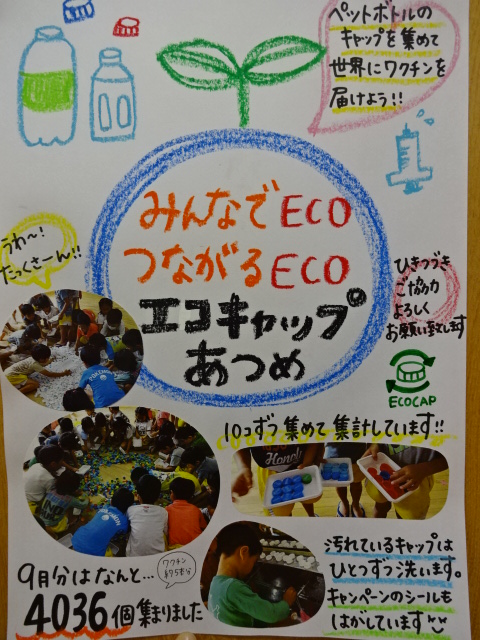 ペットボトルの
キャップを集めて
世界にワクチンを
届けよう!!
みんなでECO
つながるECO
エコキャップ
あつめ
うわ〜!
たっくさーん!!
ひきつづき
ご協力
よろしく
お願い致します
ECOCAP
10コずつ集めて集計しています!!
汚れているキャップは
ひとつずつ洗います。
キャンペーンのシールも
はがしています
9月分はなんと…
ワクチン
4036個集まりました